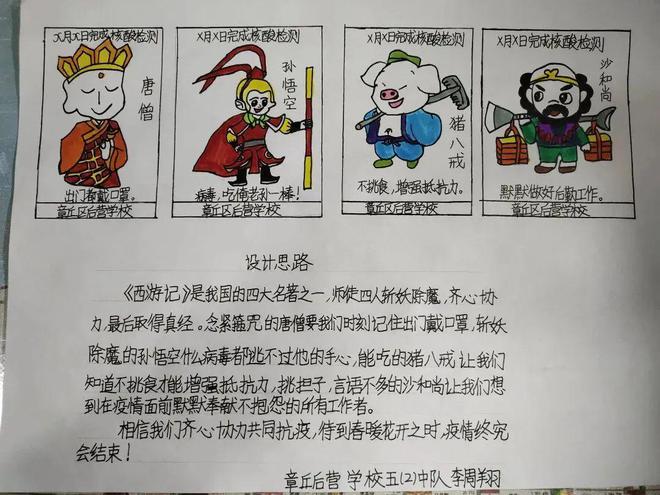 X月X日完成核酸检测
唐僧
出门都戴口罩。
章丘区后营学校
X月X日完成核酸检测
孙悟空
病毒,吃俺老孙一棒!
章丘区后营学校
X月X日完成核酸检测
猪八戒
不挑食,增强抵抗力。
章丘区后营学校
X月X日完成核酸检测
沙和尚
默默做好后勤工作。
章丘区后营学校
设计思路
《西游记》是我国的四大名著之一,师徒四人斩妖除魔,齐心协
力,最后取得真经。念紧箍咒的唐僧要我们时刻记住出门戴口罩,斩妖
除魔的孙悟空什么病毒都逃不过他的手心,能吃的猪八戒让我们
知道不挑食才能增强抵抗力,挑担子,言语不多的沙和尚让我们想
到在疫情面前默默奉献不抱怨的所有工作者。
相信我们齐心协力共同抗疫,待到春暖花开之时,疫情终究
会结束!
章丘后营学校五(2)中队李周翔